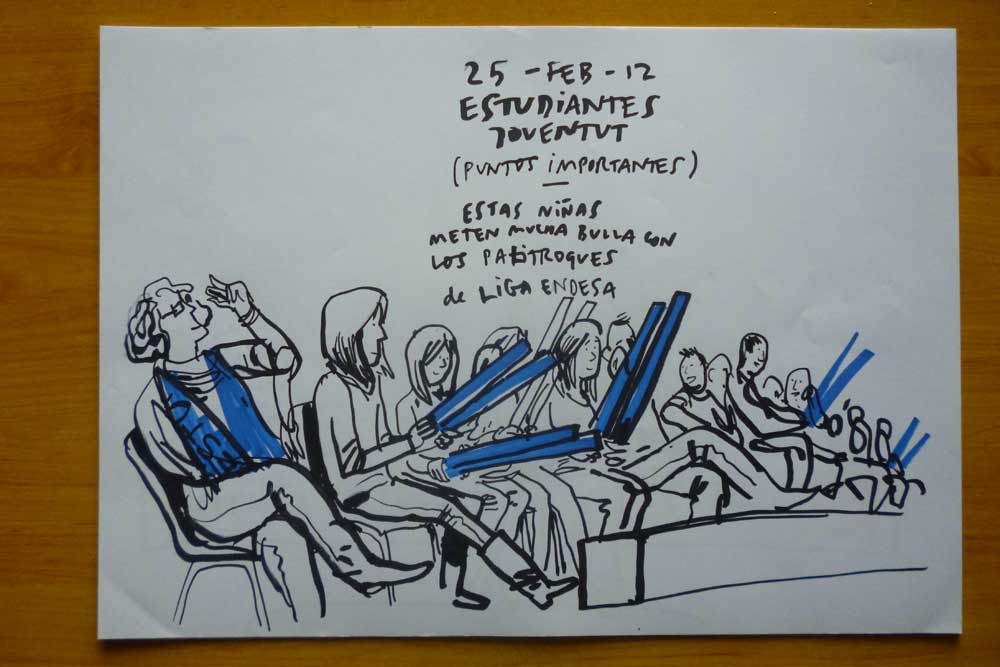 25 - FEB - 12
ESTUDiANTES
JOVENTUT
(PUNTOS iMPORTANTES)
ESTAS NiÑAS
METEN MUCHA BULLA CON
LOS PALITROQUES
de LiGA ENDESA